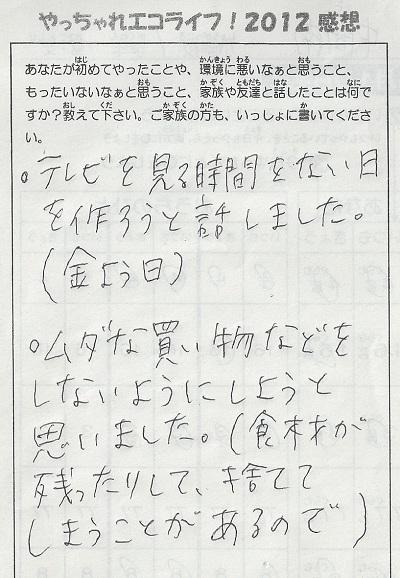 やっちゃれエコライフ！2012 感想
あなたが初めてやったことや、環境に悪いなぁと思うこと、
もったいないなぁと思うこと、家族や友達と話したことは何で
すか？教えて下さい。ご家族の方も、いっしょに書いてくださ
い。
。テレビを見る時間をない日
を作ろうと話しました。
(金よう日)
。ムダな買い物などを
しないようにしようと
思いました。(食材が
残ったりして、捨てて
しまうことがあるので)